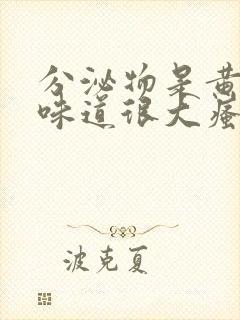 分泌物呈黄
味道很大瘙
波克夏